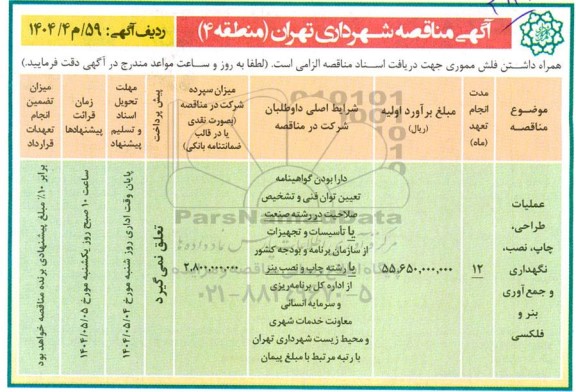 آگهی مناقصه شهرداری تهران (منطقه ۴)
ردیف آگهی: ۵۹/م۴/۱۴۰۴
همراه داشتن فلش مموری جهت دریافت اسناد مناقصه الزامی است. (لطفا به روز و ساعت مواعد مندرج در آگهی دقت فرمایید.)
موضوع
مناقصه
مدت
انجام
تعهد
(ماه)
مبلغ برآورد اولیه
(ریال)
شرایط اصلی داوطلبان
شرکت در مناقصه
میزان سپرده
شرکت در مناقصه
(بصورت نقدی
یا در قالب
ضمانتنامه بانکی)
پیش پرداخت
مهلت
تحویل
اسناد
و تسلیم
پیشنهاد
زمان
قرائت
پیشنهادها
میزان
تضمین
انجام
تعهدات
قرارداد
عملیات
طراحی،
چاپ، نصب،
نگهداری
و جمع‌آوری
بنر و
فلکسی
۱۲
۵۵,۶۵۰,۰۰۰,۰۰۰
دارا بودن گواهینامه
تعیین توان فنی و تشخیص
صلاحیت در رشته صنعت
یا تأسیسات و تجهیزات
از سازمان برنامه و بودجه کشور
یا رشته چاپ و نصب بنر
از اداره کل برنامه‌ریزی
و سرمایه انسانی
معاونت خدمات شهری
و محیط زیست شهرداری تهران
با رتبه مرتبط با مبلغ پیمان
۲,۸۰۰,۰۰۰,۰۰۰
تعلق نمی گیرد
پایان وقت اداری روز شنبه مورخ ۱۴۰۴/۰۵/۰۴
ساعت ۱۰ صبح روز یکشنبه مورخ ۱۴۰۴/۰۵/۰۵
برابر ۱۰٪ مبلغ پیشنهادی برنده مناقصه خواهد بود
ParsNamadData
۰۲۱-۸۸۳۴۹۶۷۰-۵